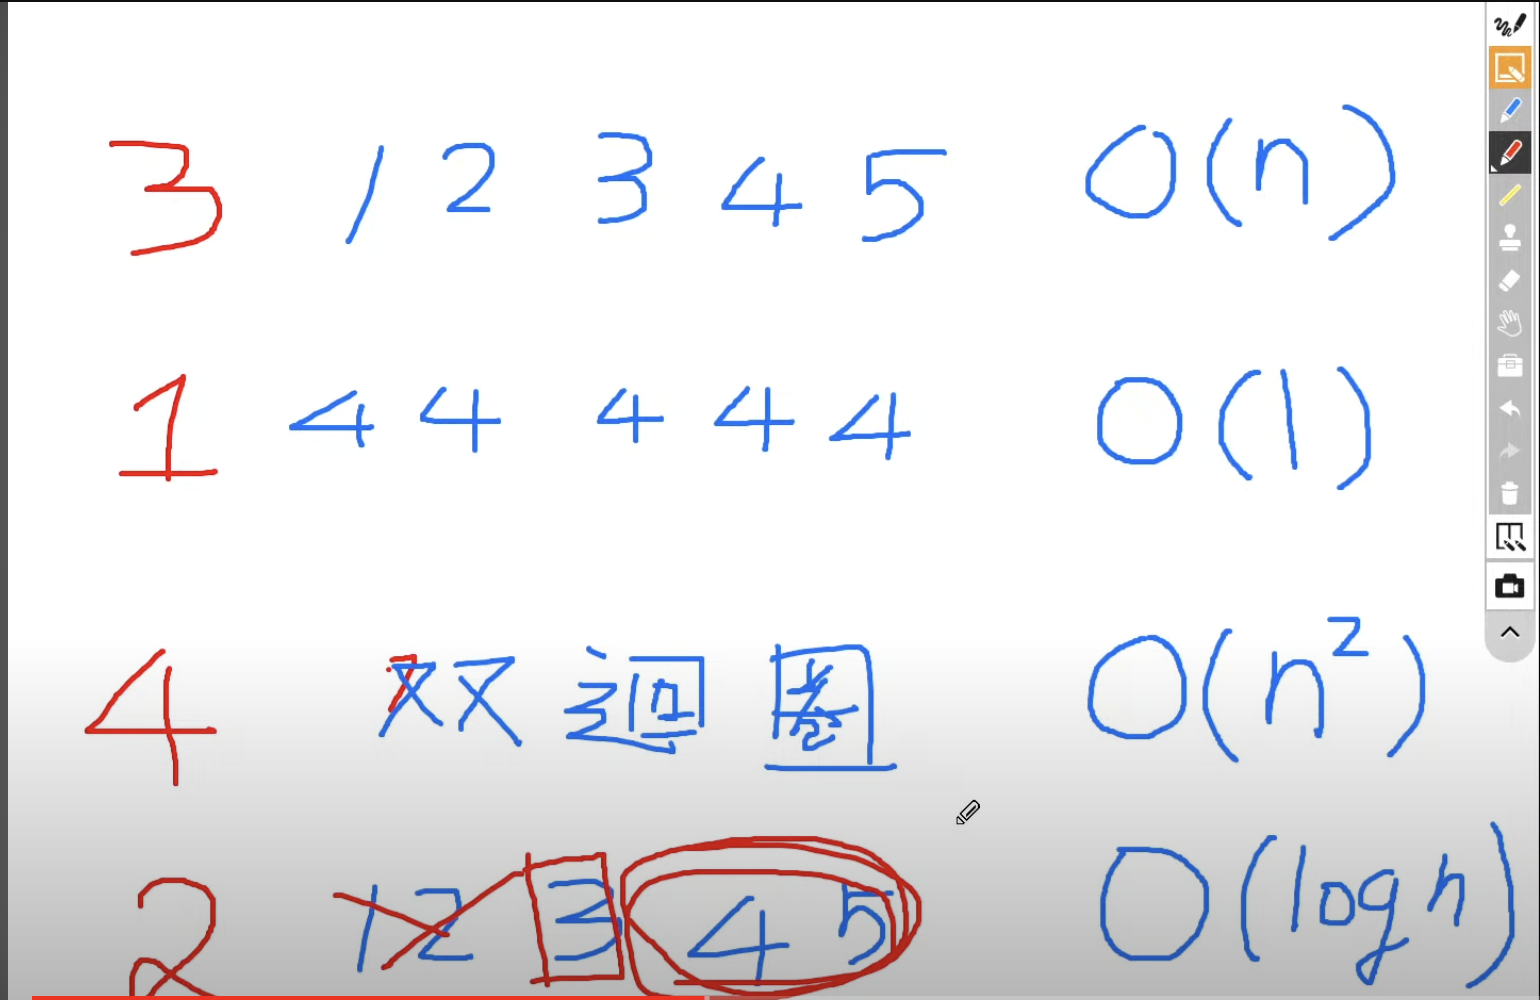 3 1 2 3 4 5 O(n)
1 4 4 4 4 4 O(1)
4 双迴圈 O(n²)
2 1 2 3 4 5 O(log n)